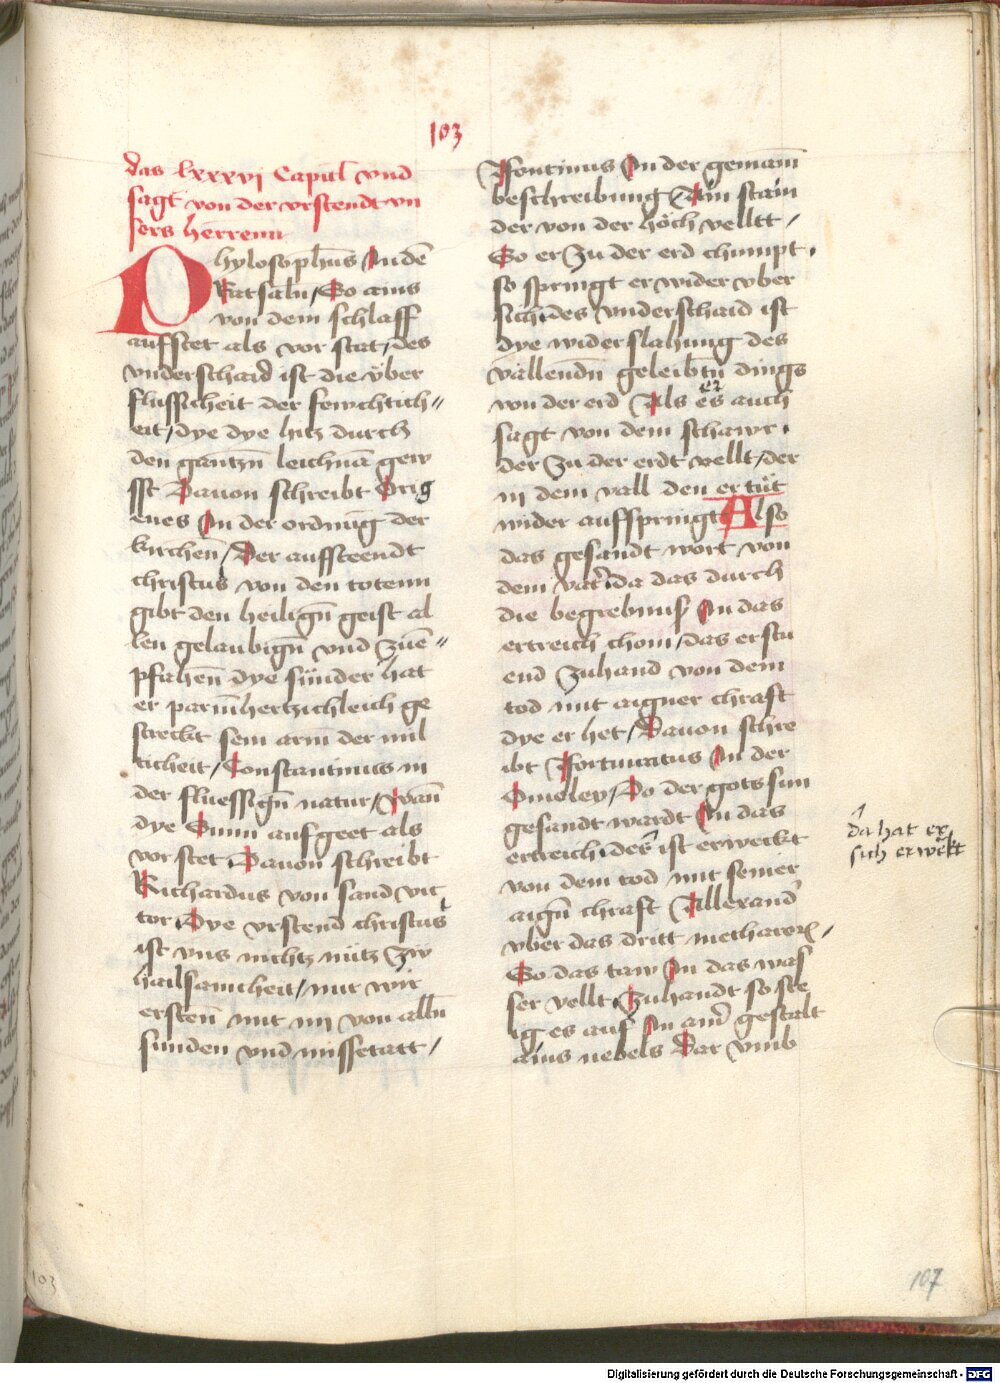 103
das lxxxvj Capitl vnd
sagt von der vrstendt vn
sers herrenn
Phylosophus Jn den
Ratsaln / So ains
von dem schlaff
aufstet als vor stat / des
vnderschaid ist die vber
flussicheit der fewchtich〃
eit / dye dye hitz durch
den gantzn leichnā gew
sst Dauon schreibt Orig
enes Jn der ordnūg der
kirchen̄ / Der aufsteendt
christus von den totenn
gibt den heilign̄ geist al
len gelaubign̄ vnd zuē〃
pfahen̄ dye sünder hat
er parmhertzichleich ge
streckt sein arm der mil
ticheit / Constantinus in
der fluessign̄ natur / Wan̄
dye Sunn auf geet als
vor stet Dauon schreibt
Richardus von sand vic
tor Dye vrstend christus
ist vns nichtz nütz zw
hailsamicheit / nur wir
ersten̄ mit im von alln̄
sunden vnd missetatt /
Ffontinus Jn der gemain̄
beschreibung Ain stain
der von der höch vellt /
So er zu der erd chumpt .
so springt er wider vber
sich des vnderschaid ist
dye widerslahung des
vallendn̄ geleibtn̄ dings
von der erd Als es auch
er
sagt von dem schawr .
der zu der erdt vellt / der
in dem vall den er tüt
wider aufspringt Also
das gesandt wort von
dem vater da das durch
die begrebnus Jn das
ertreich chom / das erstu
end zuhand von dem
tod mit aigner chraft
dye er het / Dauon schre
ibt Ffortunatus Jn der
Omeley / Do der gots sun
gesandt wardt Jn das
ertreich des ist erweckt
von dem tod mit seiner
aign̄ chraft Allexander
vber das dritt metharor̄ /
So das taw Jn das was
ser vellt Zuhandt so ste
ig es auf Jn ainer gestalt
ains nebels Dar vmb
da hat er
sich erwekt
103
107
Digitalisierung gefördert durch die Deutsche Forschungsgemeinschaft - DFG